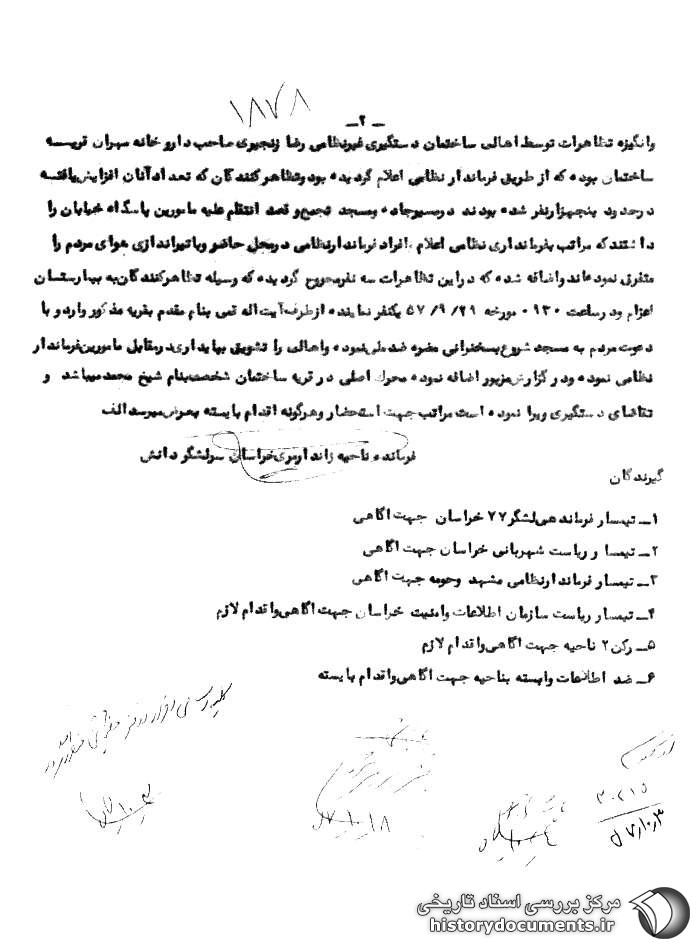 ۱۸۷۸
ـ ۲ـ
وانگیزه تظاهرات توسط اهالی ساختمان دستگیری غیرنظامی رضا زنجیری صاحب داروخانه مهران قریسه
ساختمان بوده که از طریق فرماندار نظامی اعلام گردیده بود وتظاهرکنندگان که تعداد آنان افزایش یافتسه
درحدود پنجهزارنفر شده بودند درمسیرجاده ومسجد تجمع و قصد انتقام علیه مامورین پاسگاه خیابان را
داشتندکه مراتب بفرمانداری نظامی اعلام ،افراد فرماندارنظامی درمحل حاضر وباتیراندازی هوای مردم را
متفرق نموده‌اند واضافه شده که دراین تظاهرات سه نفرمجروح گردیده که وسیله تظاهرکنندگان به بیارستسان
اعزام ودرساعت ۰۹۳۰ مورخه ۵۷/۹/۲۹ یکنفر نماینده ازطرف آیت‌اله قمی بنام مقدم بقریه مذکور وارد و با
دعوت مردم به مسجد شروع بسخنرانی مضره ضدملی نموده واهالی را تشویق بپایداری درمقابل مامورین فرماندار
نظامی نموده ودرگزارش مزبور اضافه نموده محرک اصلی در قریه ساختمان شخصت بنام شیخ محمد میباشد و
تقاضای دستگیری ویرا نموده است مراتب جهت استحضار وهرگونه اقدام بایسته بعرض میرسد الف
فرمانده ناحیه ژاندارمری خراسان سرلشگر دانش
گیرندگان
۱ـ تیمسار فرمانده‌ی لشگر ۷۷ خراسان جهت اگاهی
۲ـ تیمسا و ریاست شهربانی خراسان جهت اگاهی
۳ـ تیمسار فرماندارنظامی مشهد وحومه جهت اگاهی
۴ـ تیمسار ریاست سازمان اطلاعات وامنیت خراسان جهت اگاهی واقدام لازم
۵ـ رکن ۲ ناحیه جهت اگاهی واقدام لازم
۶ـ ضد اطلاعات وابسته بناحیه جهت اگاهی واقدام بایسته
۵۷/۱۰/۳
مرکز بررسی اسناد تاریخی
historydocuments.ir